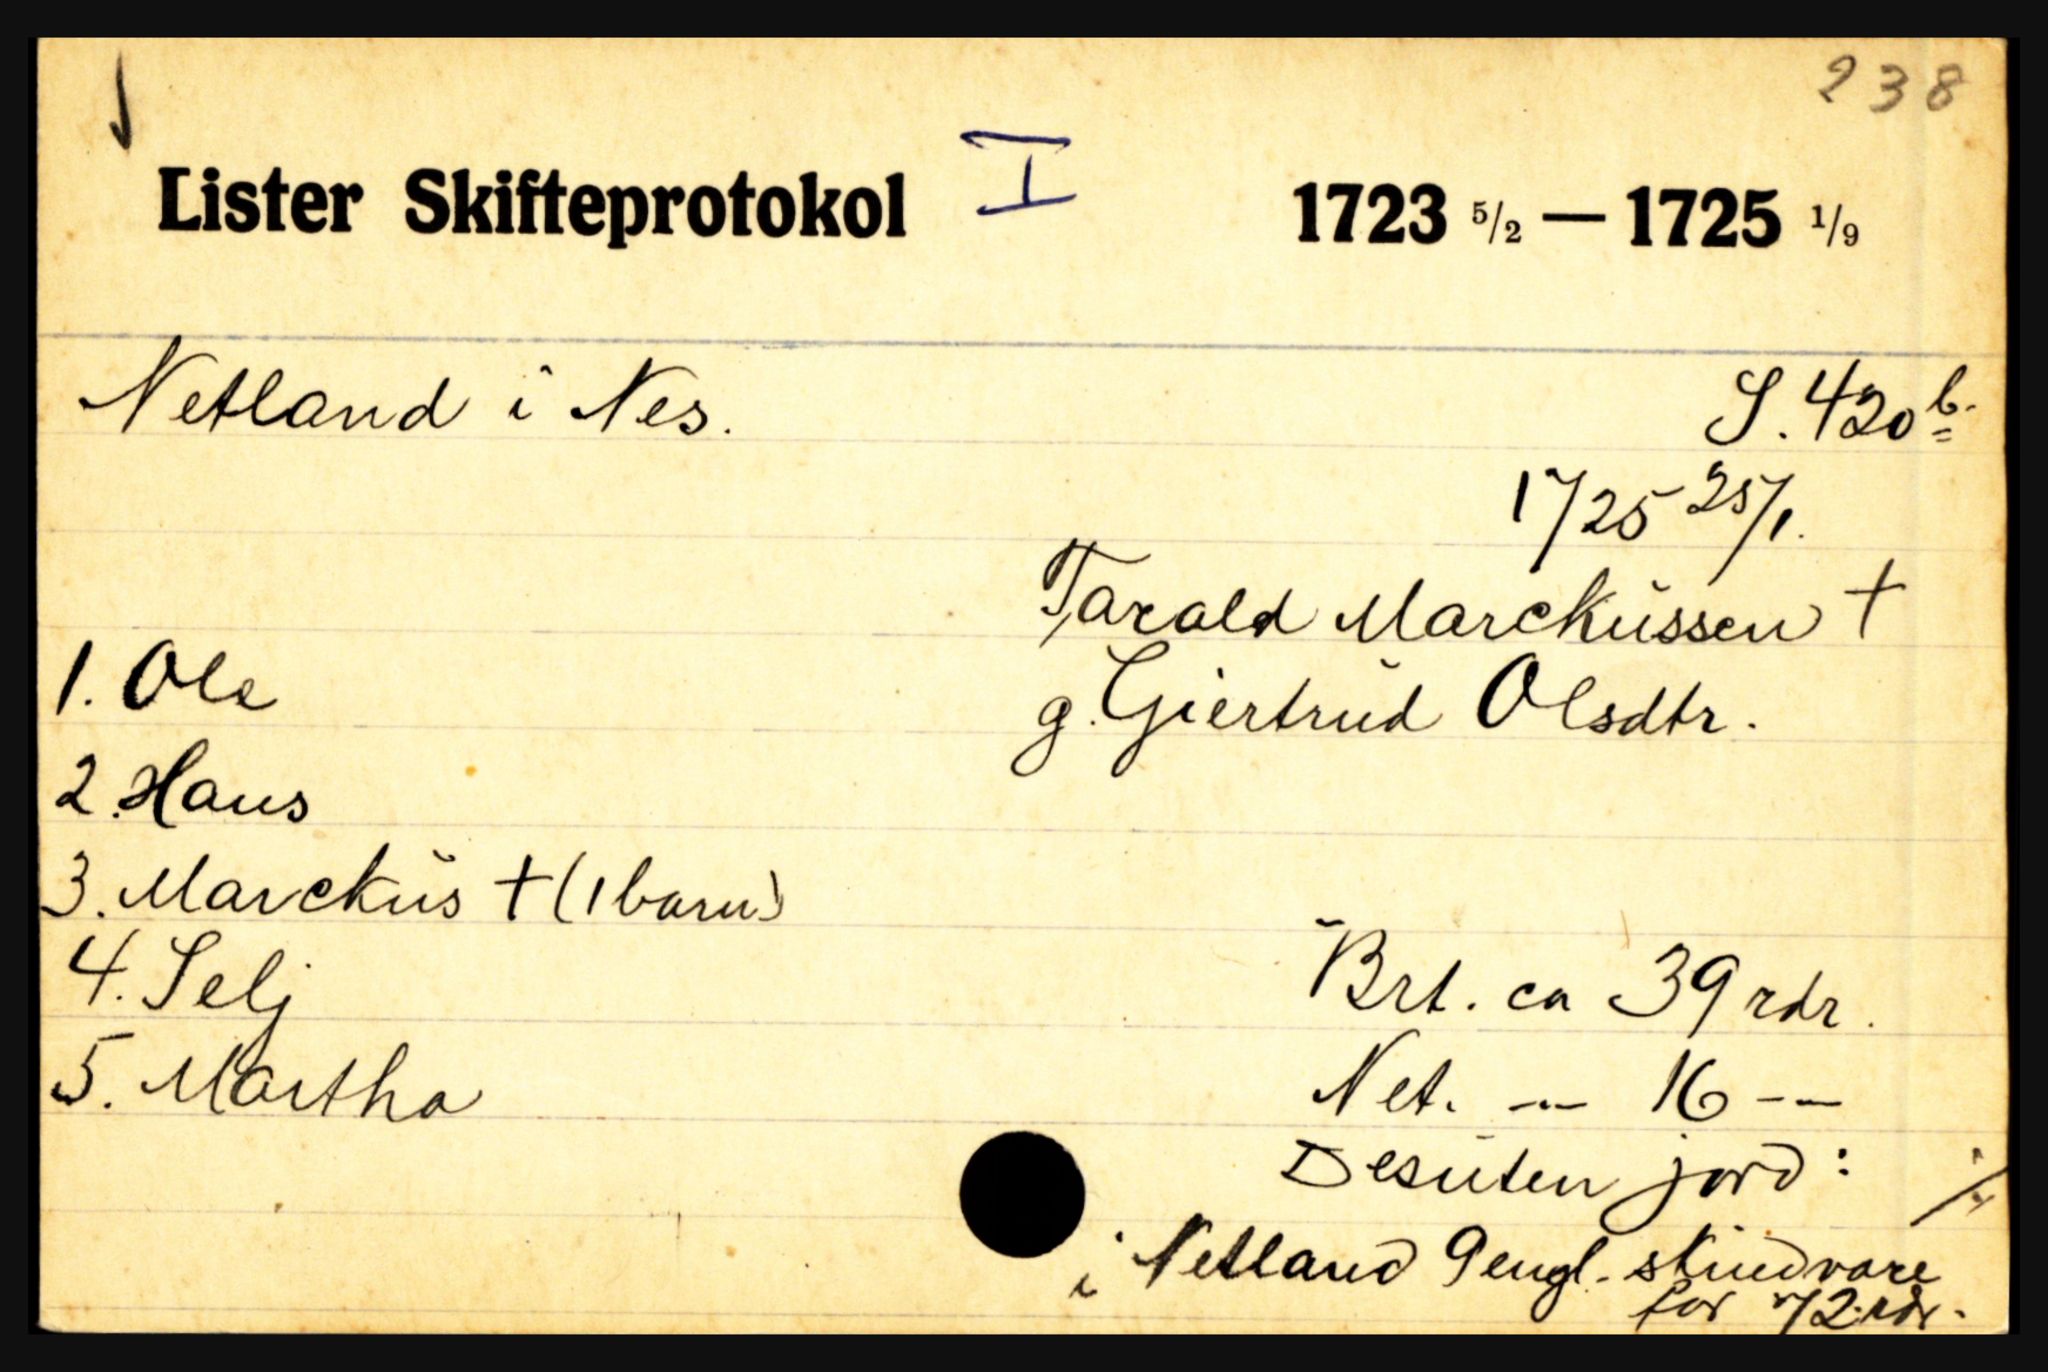 238
Lister Skifteprotokol I 1723 5/2 — 1725 1/9
Netland i Nes. S. 420 b.
1725 25/1.
Tarald Marckussen †
1. Ole
g. Giertrud Olsdtr.
2. Hans
3. Marckus † (1 barn)
4. Selj
Brt. ca 39 rdr.
5. Martha
Net. — 16 —
Desuten jord: ./.
i Netland 9 engl. skindvare
for 72 rdr.